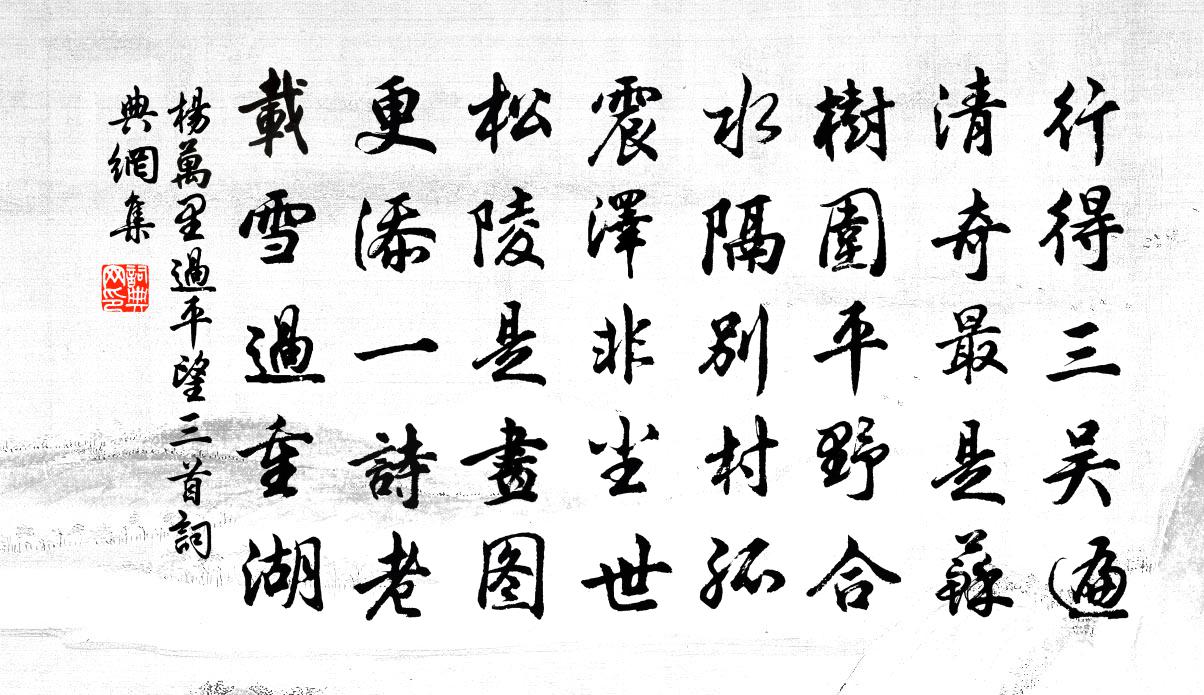 行得三吴遍
清奇最是蘇
樹圍平野合
水隔別村孤
震澤非尘世
松陵是畫图
更添一詩老
載雪過重湖
楊萬里過平望三首詞
典網集
詞典
网印